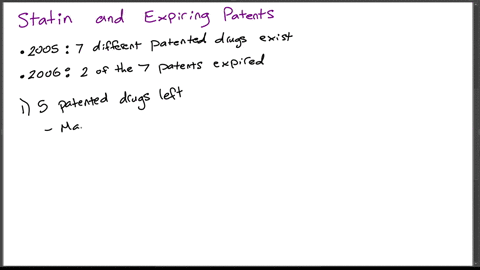 Statin and Expiring Patents
• 2005 : 7 different patented drugs exist
• 2006 : 2 of the 7 patents expired
i) 5 patented drugs left
- Ma